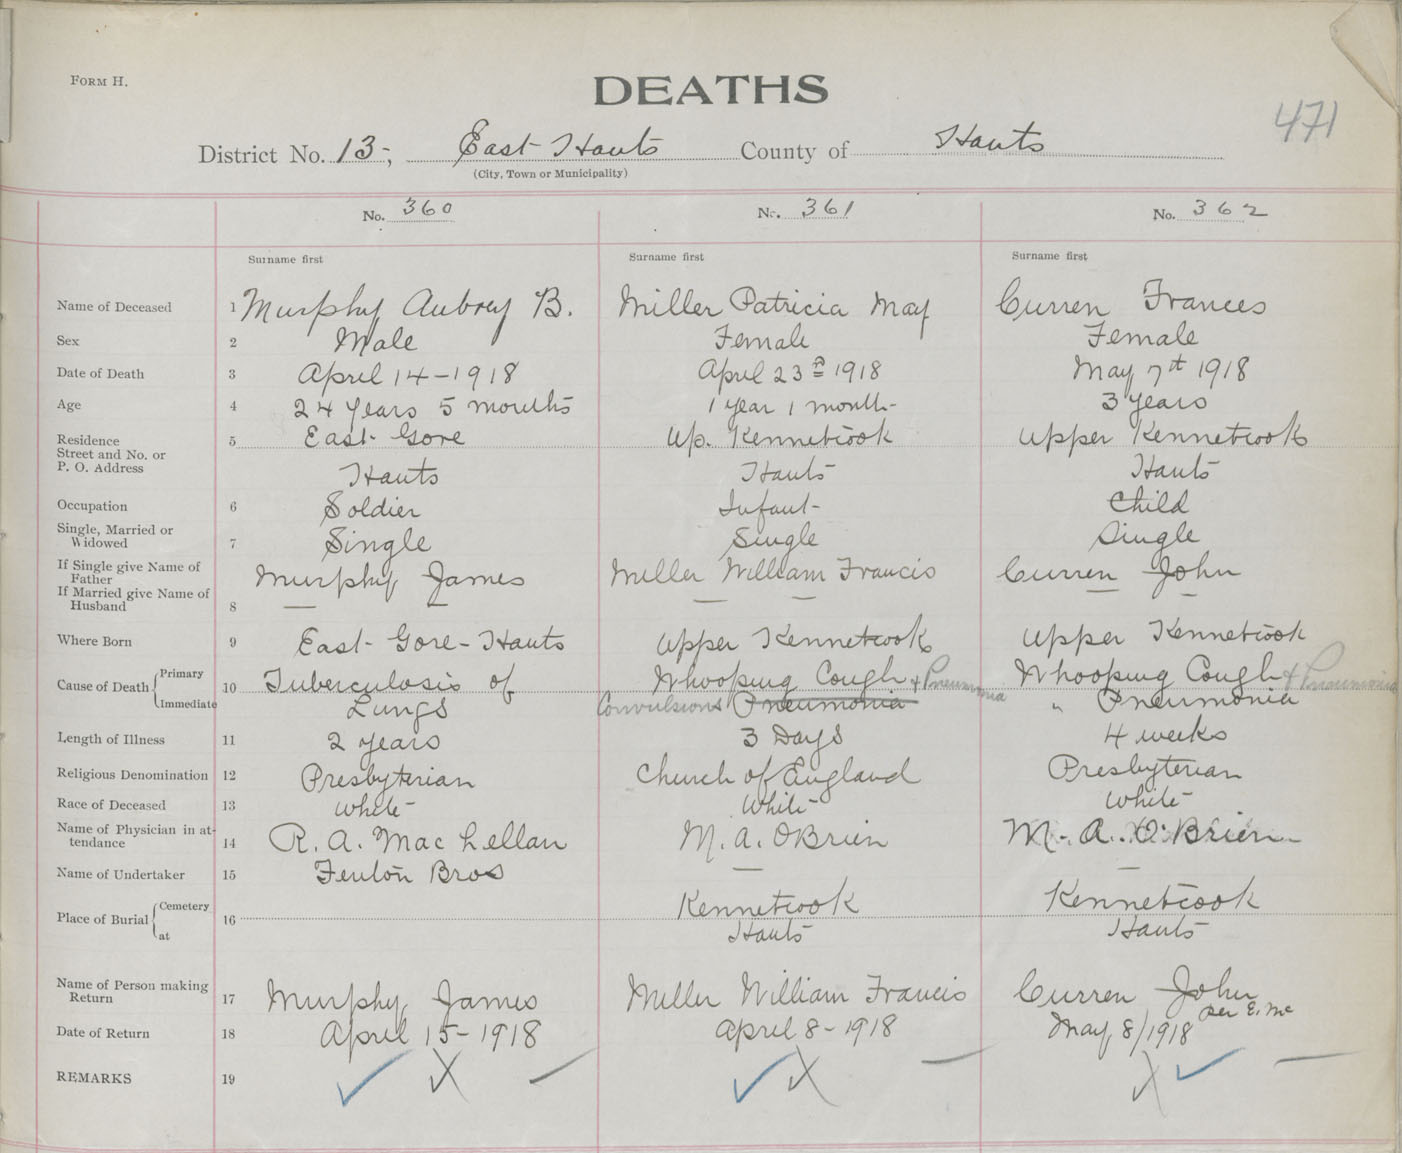 FORM H.
DEATHS
471
District No. 13-, East Hants County of Hants
(City, Town or Municipality)
No. 360 No. 361 No. 362
Surname first Surname first Surname first
Name of Deceased 1 Murphy Aubrey B. Miller Patricia May Curren Frances
Sex 2 Male Female Female
Date of Death 3 April 14-1918 April 23rd 1918 May 7th 1918
Age 4 24 years 5 months 1 year 1 month- 3 years
Residence 5 East Gore Up. Kennetcook Upper Kennetcook
Street and No. or
P. O. Address Hants Hants Hants
Occupation 6 Soldier Infant- Child
Single, Married or
Widowed 7 Single Single Single
If Single give Name of
Father Murphy James Miller William Francis Curren John
If Married give Name of
Husband 8 — — — — — —
Where Born 9 East Gore-Hants Upper Kennetcook Upper Kennetcook
Cause of Death Primary 10 Tuberculosis of Whooping Cough + Pneumonia Whooping Cough + Pneumonia
Immediate Lungs Convulsions Pneumonia " Pneumonia
Length of Illness 11 2 years 3 Days 4 weeks
Religious Denomination 12 Presbyterian Church of England Presbyterian
Race of Deceased 13 White White White
Name of Physician in at-
tendance 14 R. A. MacLellan M. A. OBrien M. A. O'Brien
Name of Undertaker 15 Fenton Bros — —
Place of Burial Cemetery 16 Kennetcook Kennetcook
at Hants Hants
Name of Person making
Return 17 Murphy James Miller William Francis Curren John
per E. Mc
Date of Return 18 April 15-1918 April 8-1918 May 8/1918
REMARKS 19 ✓ X — ✓ X — X ✓ —